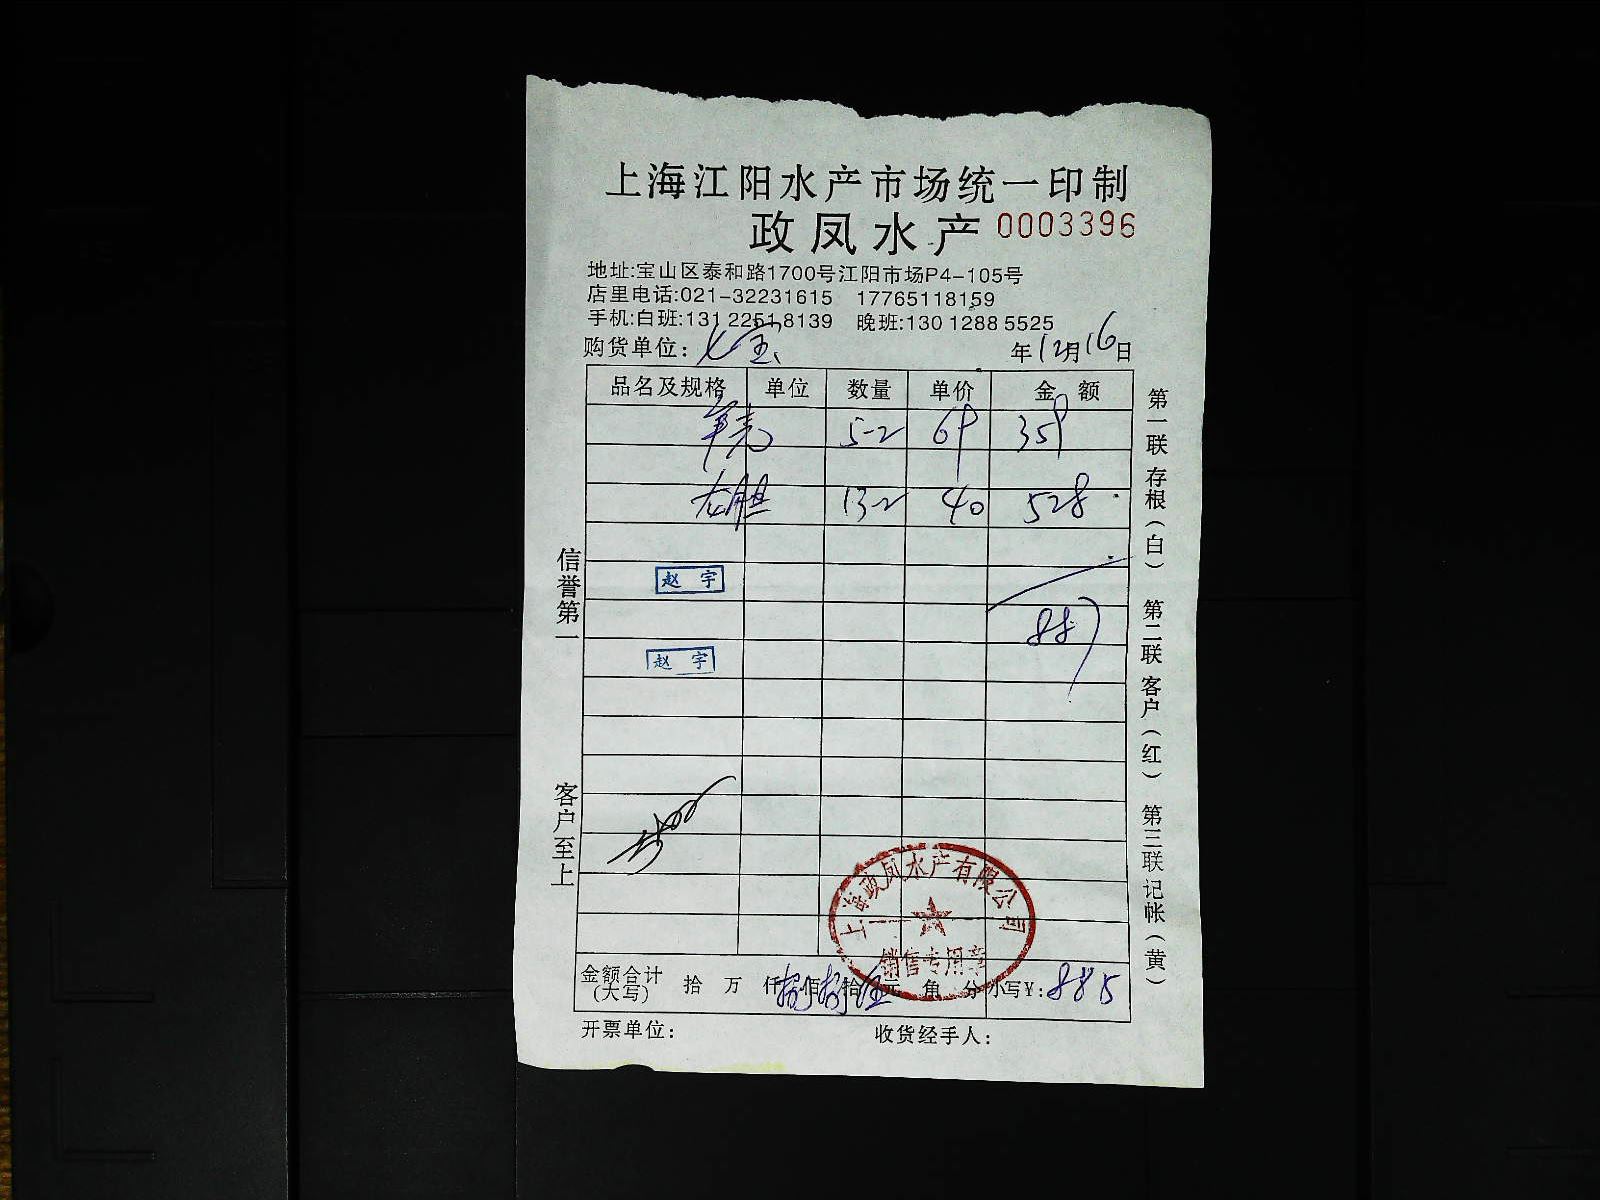 上海江阳水产市场统一印制
政凤水产 0003396
地址:宝山区泰和路1700号江阳市场P4-105号
店里电话:021-32231615 17765118159
手机:白班:131 2251 8139 晚班:130 1288 5525
购货单位: 七宝 年12月16日
品名及规格 单位 数量 单价 金额
5-2 69 359
龙胆 13-2 40 528
赵宇
887
赵宇
上海政凤水产有限公司
销售专用章
金额合计(大写) 拾 万 仟 捌佰捌拾伍元 角 分 小写¥:885
开票单位: 收货经手人:
信誉第一 客户至上
第一联存根(白) 第二联客户(红) 第三联记帐(黄)